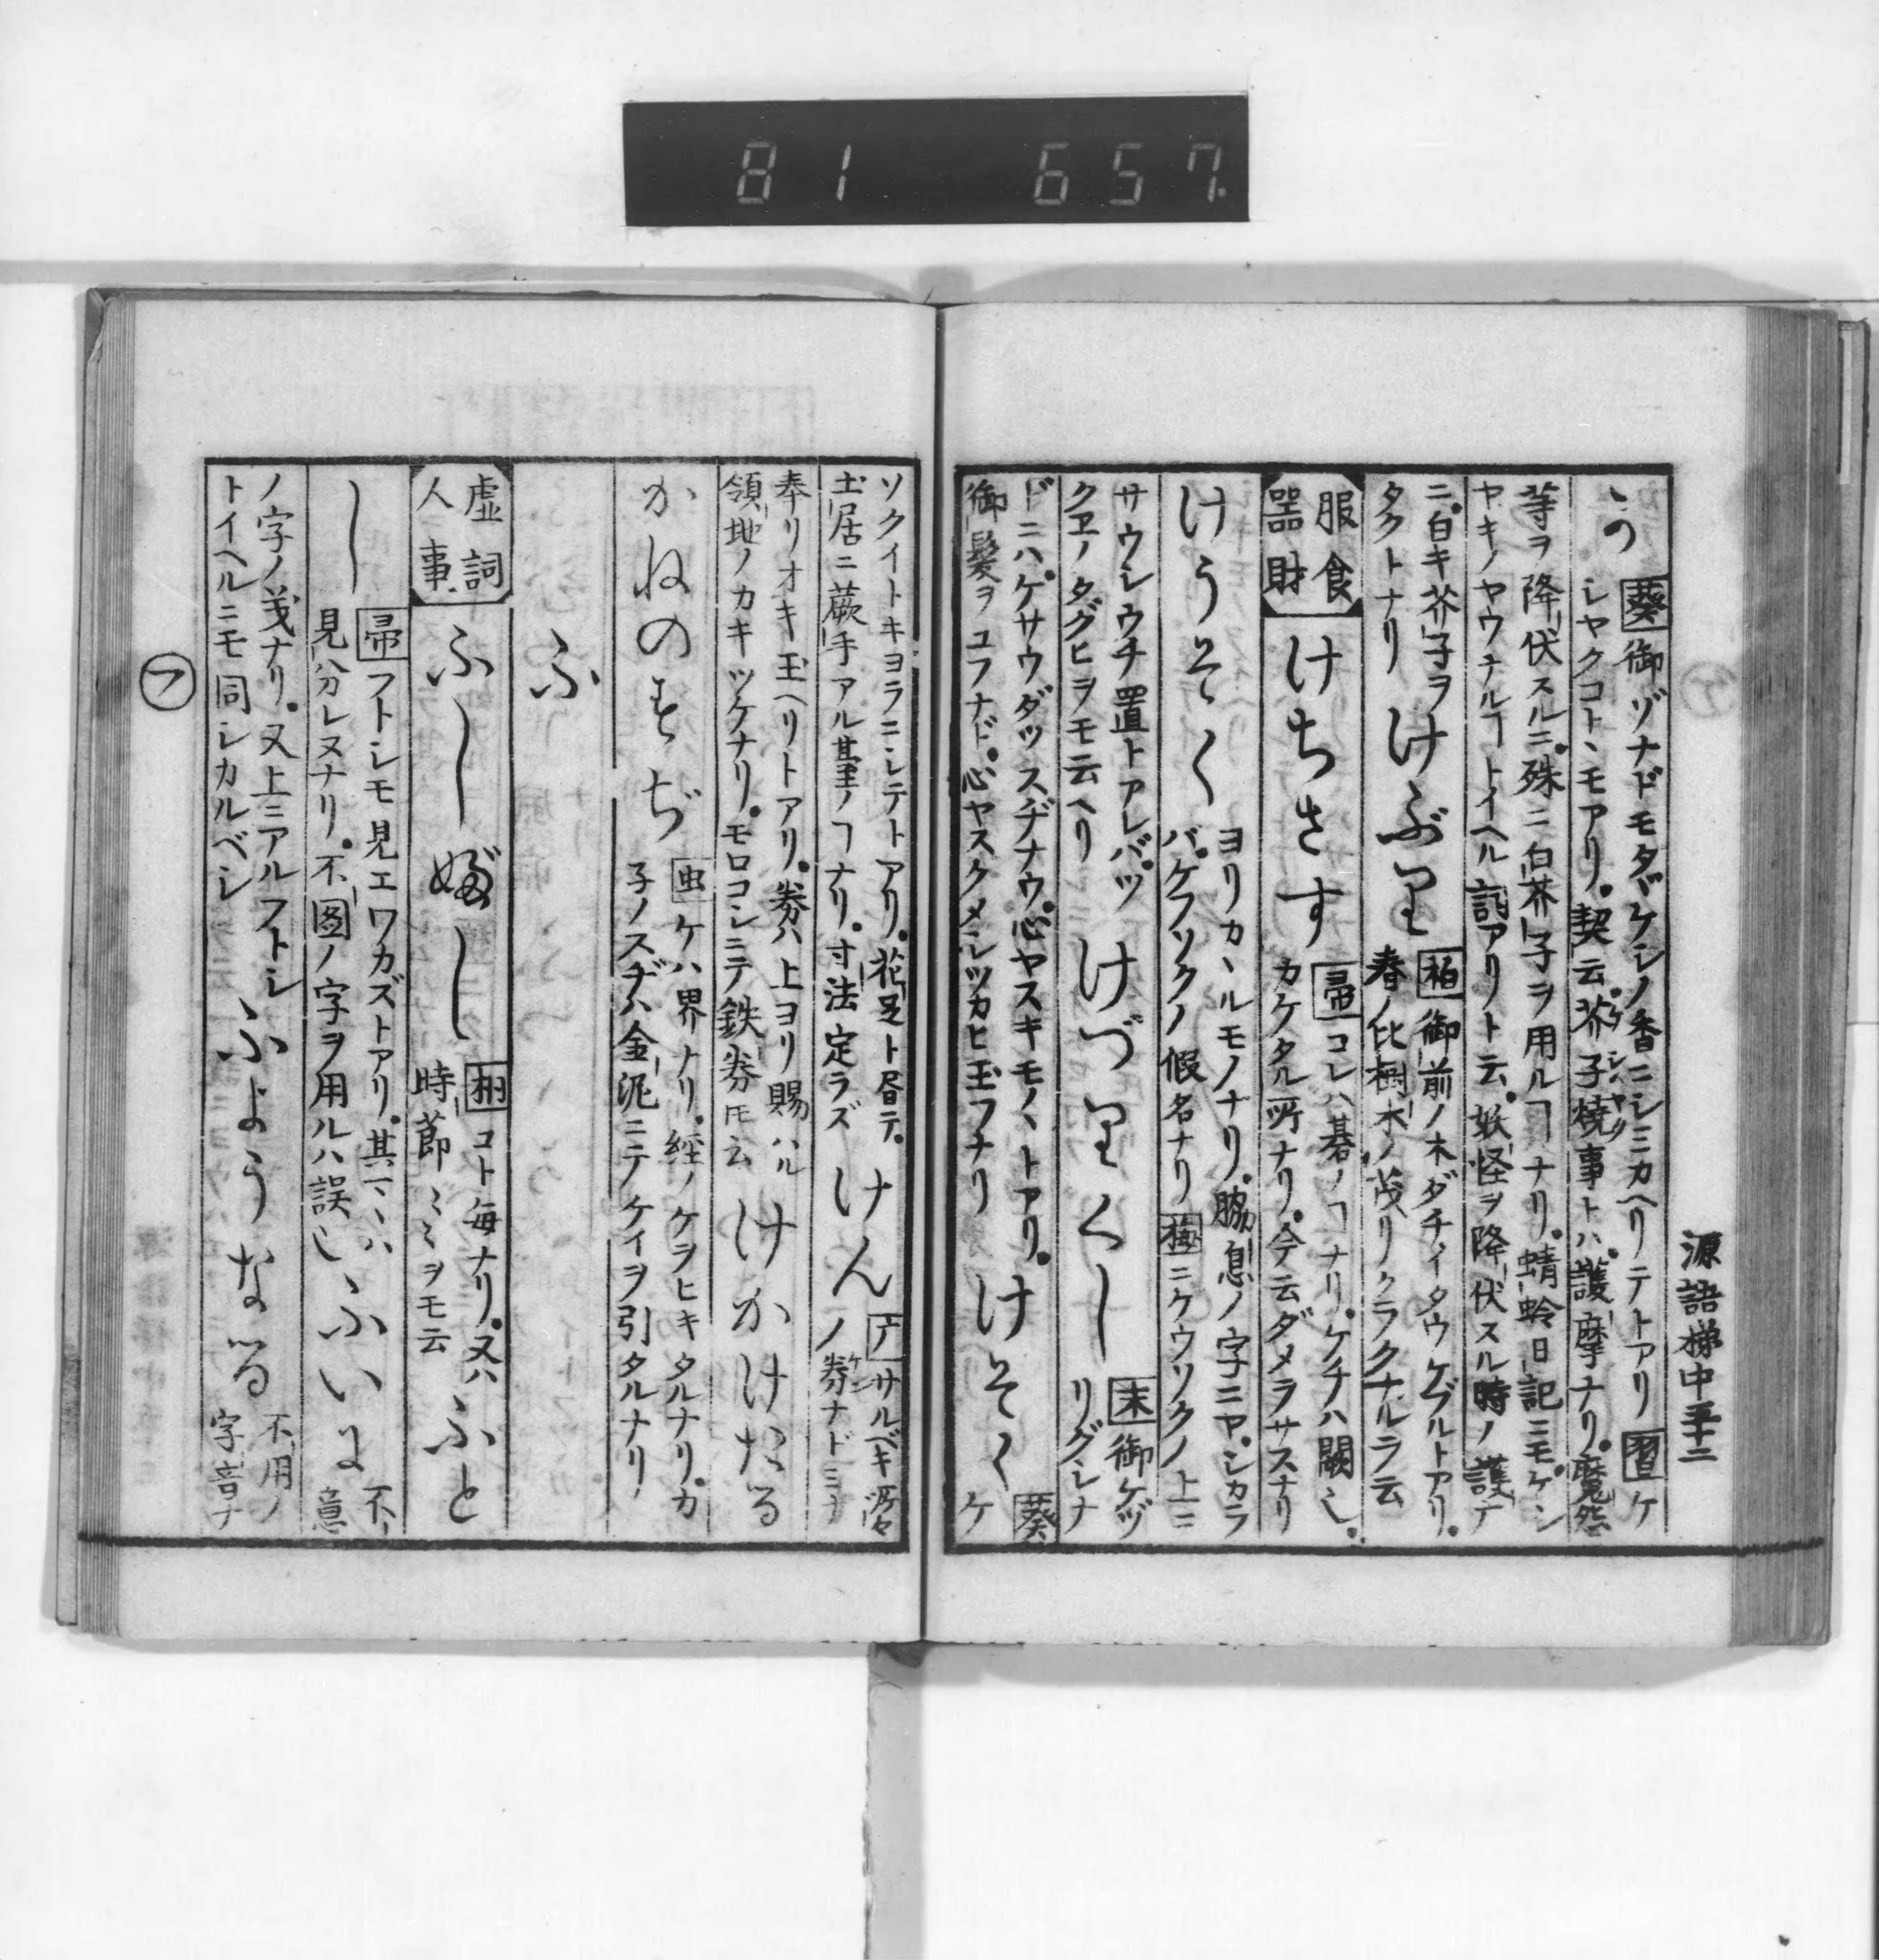 81 657.
源語梯中 五十二
ゝの
葵 御ゾナドモタヾケシノ香ニシミカヘリテトアリ 習 ケ
シヤクコトヽモアリ。契云。芥子燒事トハ。護摩ナリ。魔怨
等ヲ降伏スルニ。殊ニ白芥子ヲ用ルコトナリ。蜻蛉日記ニモ。ケシ
ヤキノヤウナルコトイヘル詞アリト云。妖怪ヲ降伏スル時ノ護テ
ニ。白キ芥子ヲ
タクトナリ
けぶり
柏 御前ノ木ダチイタウケブルトアリ。
春ノ比樹木ノ茂リクラクナルラ云
服食
器財
けちさす
帚 コレハ碁ノコトナリ。ケチハ闕也。
カケタル所ナリ。今云ダメラサスナリ
けうそく
ヨリカヽルモノナリ。脇息ノ字ニヤ。シカラ
バ。ケフソクノ假名ナリ 梅 ニケウソクノ上ニ
サウシウチ置トアレバ。ツ
クヱノタグヒヲモ云ヘリ
けづりぐし
末 御ケヅ
リグシナ
ドニハ。ケサウダツスヂナウ。心ヤスキモノヽトアリ。
御髮ヲユフナド。心ヤスクメシツカヒ玉フナリ
けそく
葵 ケ
ソクイトキヨラニシテトアリ。花足ト昏テ。
土居ニ蕨手アル臺ノコトナリ。寸法定ラズ
けん
サルベキ所々
ノ券ナドミナ
奉リオキ玉ヘリトアリ。券ハ上ヨリ賜ハル
領地ノカキツケナリ。モロコシニテ鉄券トモ云
けかけたる
かねのすぢ
虫 ケハ界ナリ。経ノケヲヒキタルナリ。カ
子ノスヂハ金泥ニテケイヲ引タルナリ
ふ
虚詞
人事
ふし〴〵し
コト毎ナリ。又ハ
時節ミミヲモ云
ふと
し
帚 フトシモ見エワカズトアリ。其一ヽハ
見分レヌナリ。不図ノ字ヲ用ルハ誤也
ふいに
不
意
ノ字ノ義ナリ。又上ニアルフトシ
トイヘルニモ同シカルベシ
ふようなる
不用ノ
字音ナ
フ